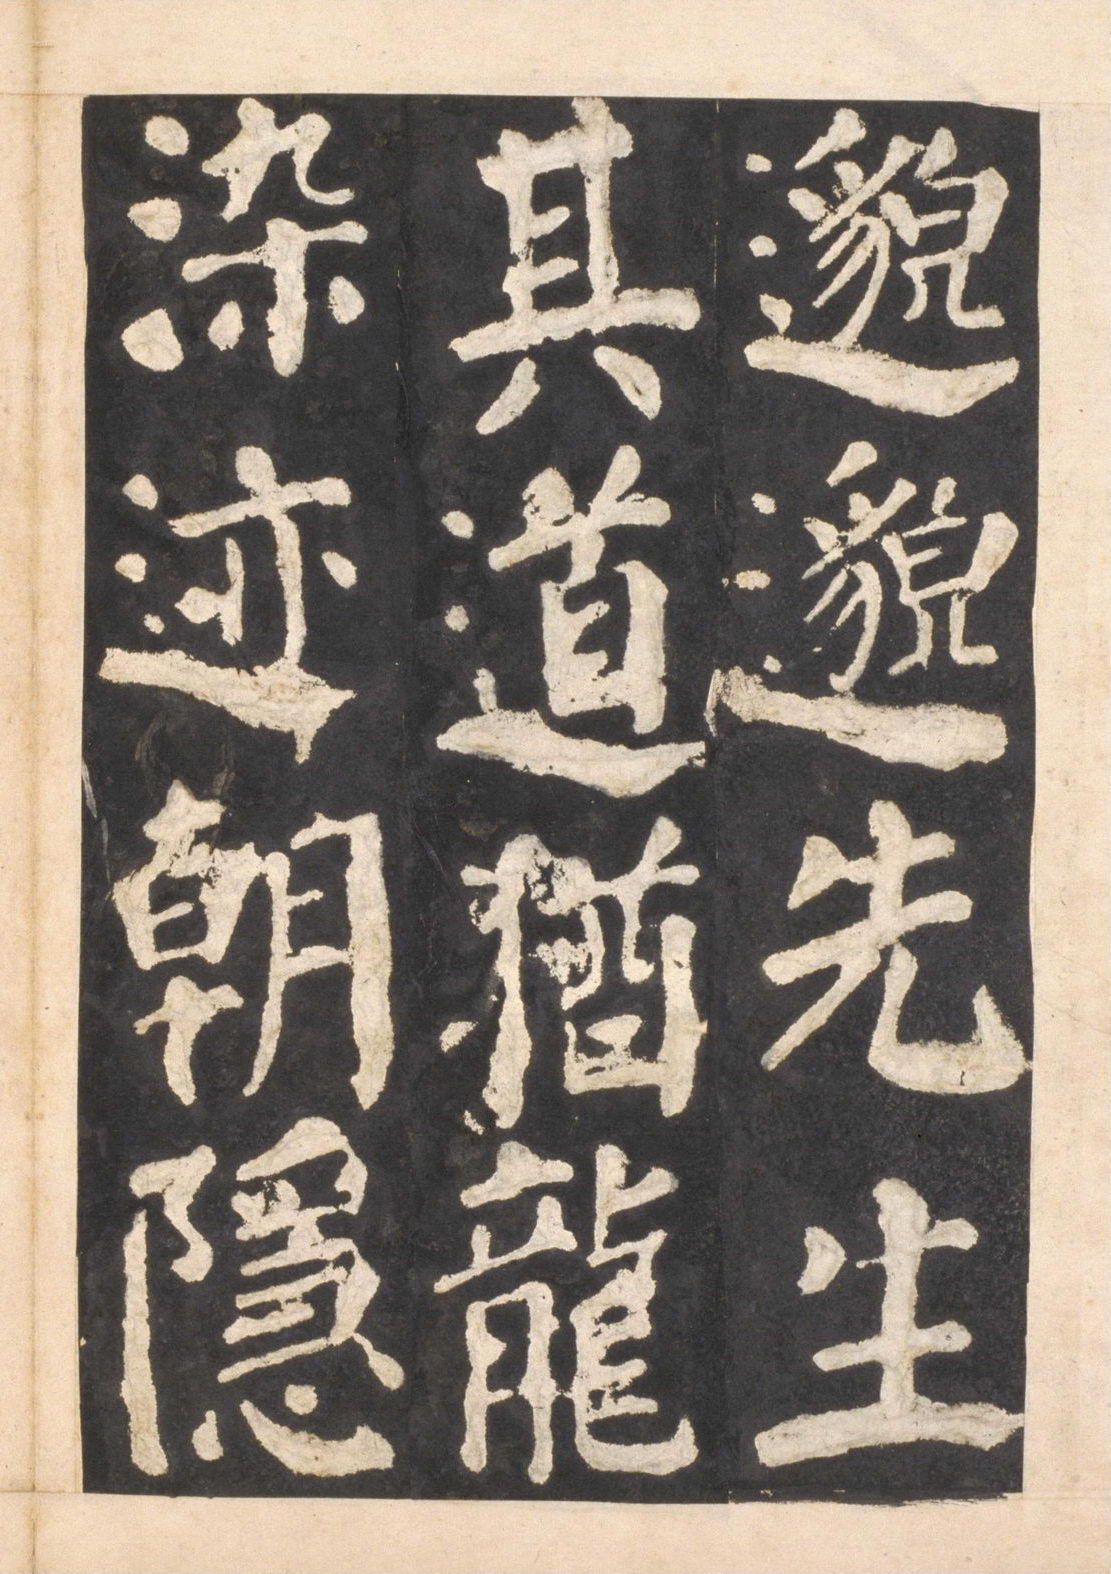 邈邈先生
其道猶龍
染迹朝隱